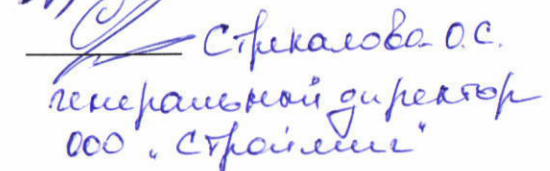 Стрекалова О.С.
генеральный директор
ООО "Строймиг"